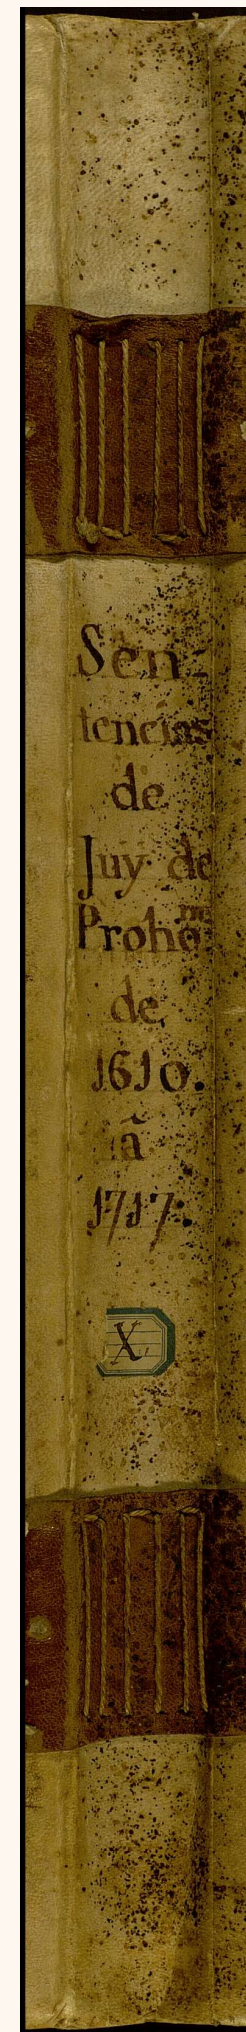 Sen-
tencias
de
Juy de
Prohoᵐᵉ
de
1610.
ã
1717.
X